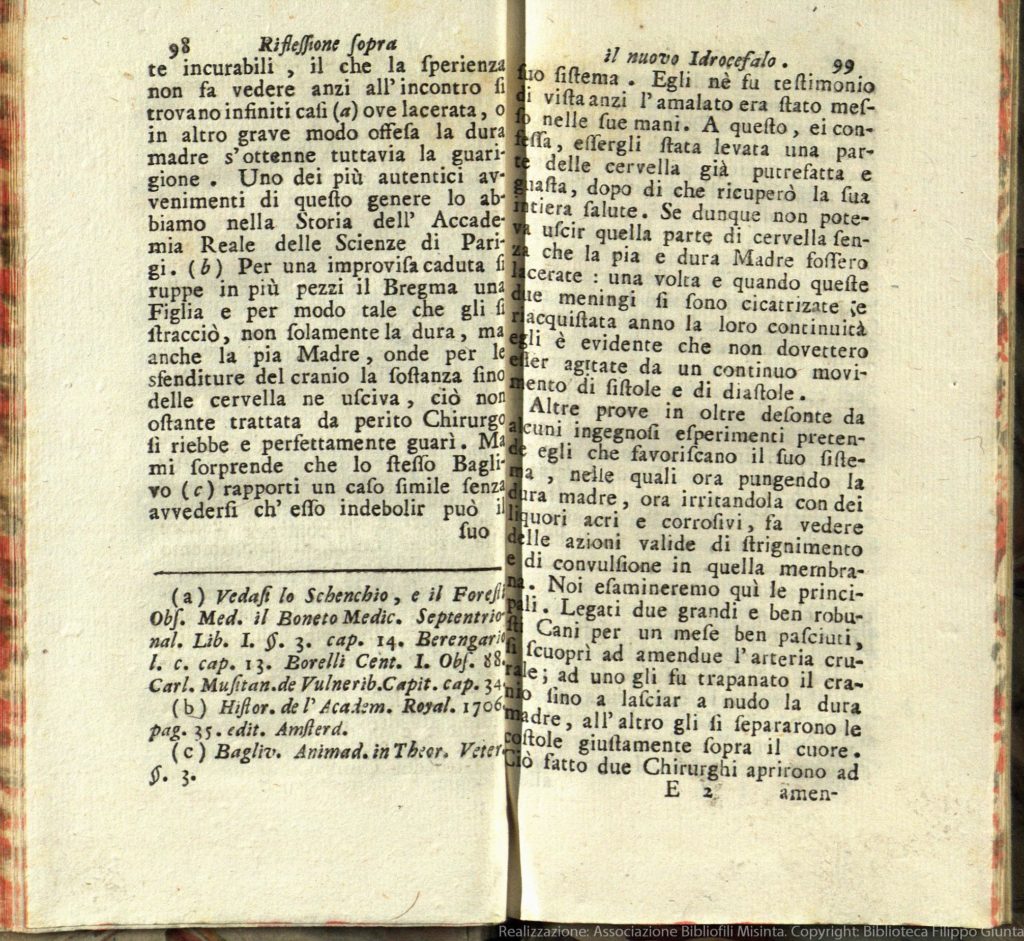 98 Riflessione sopra
te incurabili , il che la sperienza
non fa vedere anzi all' incontro si
trovano infiniti casi (a) ove lacerata, o
in altro grave modo offesa la dura
madre s'ottenne tuttavia la guari-
gione . Uno dei più autentici av-
venimenti di questo genere lo ab-
biamo nella Storia dell' Accade-
mia Reale delle Scienze di Pari-
gi. (b) Per una improvisa caduta si
ruppe in più pezzi il Bregma una
Figlia e per modo tale che gli si
stracciò, non solamente la dura, ma
anche la pia Madre, onde per le
sfenditure del cranio la sostanza sino
delle cervella ne usciva, ciò non
ostante trattata da perito Chirurgo
si riebbe e perfettamente guarì. Ma
mi sorprende che lo stesso Bagli-
vo (c) rapporti un caso simile senza
avvedersi ch' esso indebolir può il
suo
(a) Vedasi lo Schenchio, e il Foresti
Obs. Med. il Boneto Medic. Septentrio-
nal. Lib. I. §. 3. cap. 14. Berengario
l. c. cap. 13. Borelli Cent. I. Obs. 88.
Carl. Musitan.de Vulnerib.Capit. cap. 34.
(b) Histor. de l' Academ. Royal. 1706.
pag. 35. edit. Amsterd.
(c) Bagliv. Animad. in Theor. Veter.
§. 3.
il nuovo Idrocefalo . 99
suo sistema . Egli nè fu testimonio
di vista anzi l'amalato era stato mes-
so nelle sue mani. A questo, ei con-
fessa, essergli stata levata una par-
te delle cervella già putrefatta e
guasta, dopo di che ricuperò la sua
intiera salute. Se dunque non pote-
va uscir quella parte di cervella sen-
za che la pia e dura Madre fossero
lacerate : una volta e quando queste
due meningi si sono cicatrizate ;e
riacquistata anno la loro continuità
egli è evidente che non dovettero
esser agitate da un continuo movi-
mento di sistole e di diastole .
Altre prove in oltre desonte da
alcuni ingegnosi esperimenti preten-
de egli che favoriscano il suo siste-
ma , nelle quali ora pungendo la
dura madre, ora irritandola con dei
liquori acri e corrosivi, fa vedere
delle azioni valide di strignimento
e di convulsione in quella membra-
na. Noi esamineremo quì le princi-
pali. Legati due grandi e ben robu-
sti Cani per un mese ben pasciuti,
si scuoprì ad amendue l'arteria cru-
rale; ad uno gli fu trapanato il cra-
nio sino a lasciar a nudo la dura
madre, all'altro gli si separarono le
costole giustamente sopra il cuore.
Ciò fatto due Chirurghi aprirono ad
E 2 amen-
Realizzazione: Associazione Bibliofili Misinta. Copyright: Biblioteca Filippo Giunta